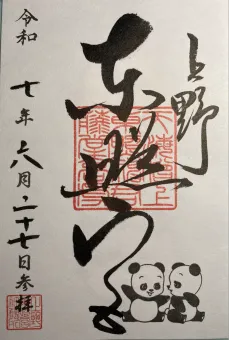 上野
東照宮
令和七年六月二十七日参拝